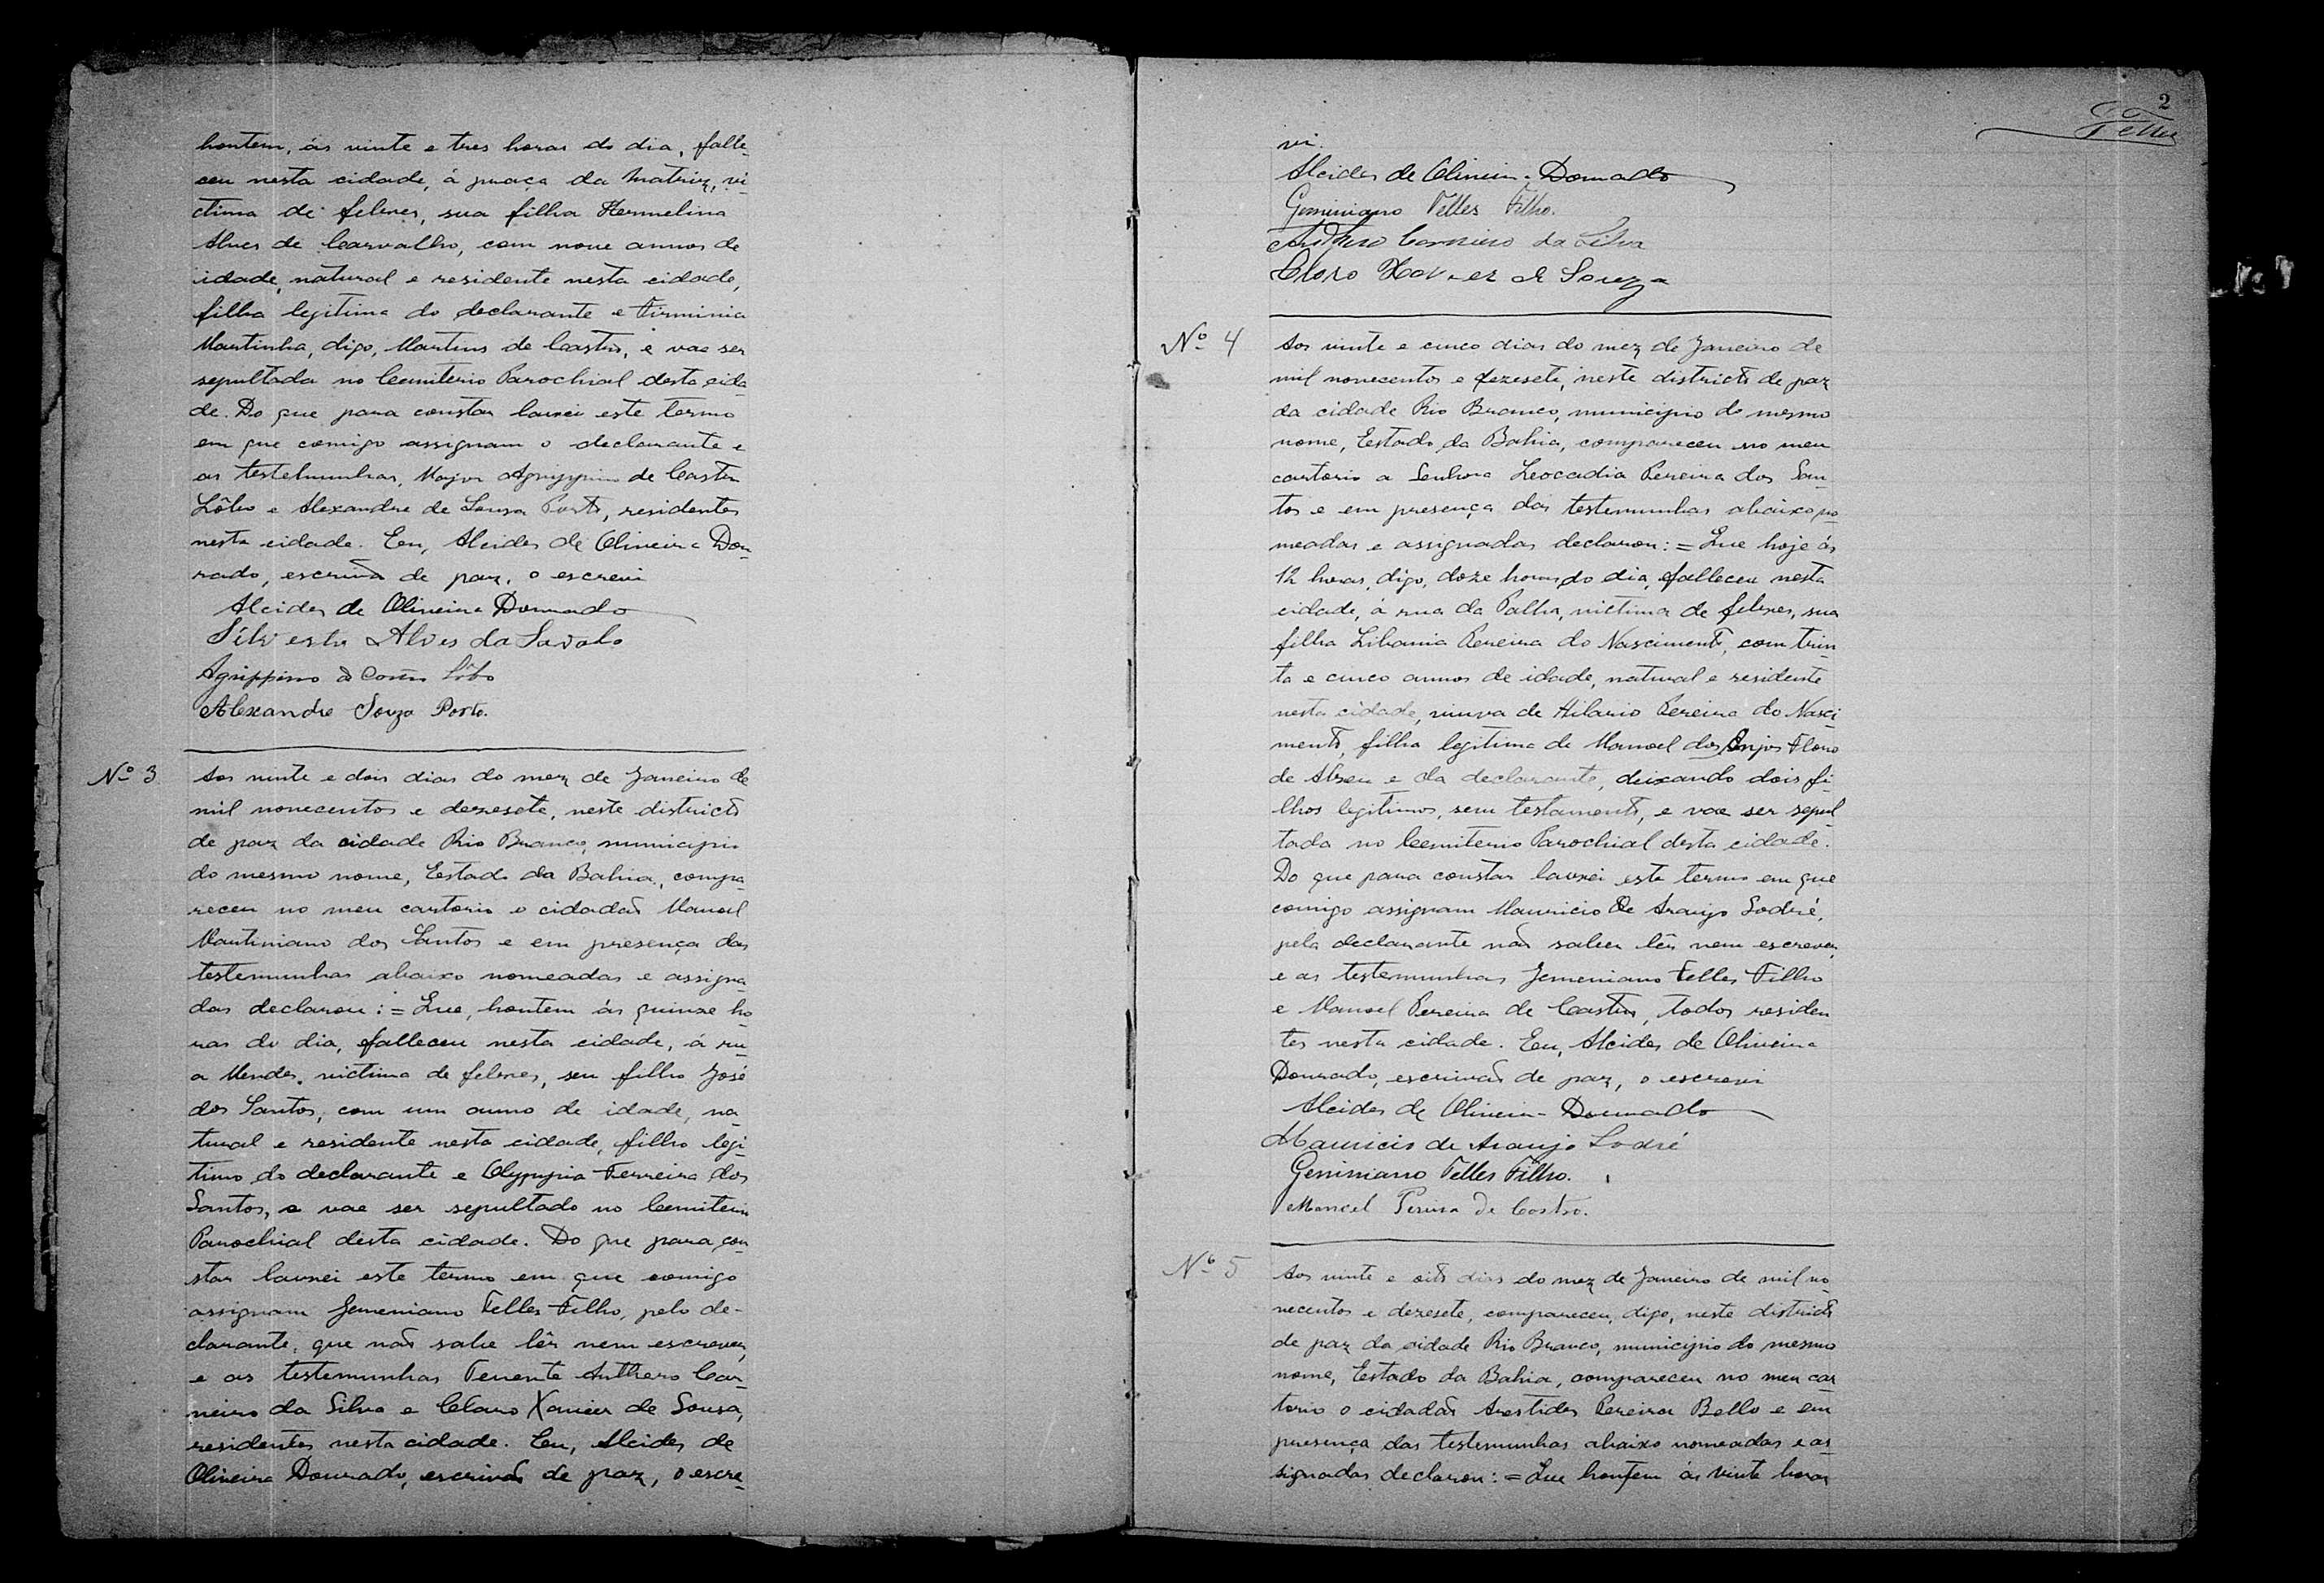 hontem, ás vinte e tres horas do dia, falle-
ceu nesta cidade, á praça da Matriz, vi
ctima de febres, sua filha Hermelina
Alves de Carvalho, com nove annos de
idade, natural e residente nesta cidade,
filha legitima do declarante e Firminia
Martinha, digo, Martins de Castro, e vae ser
sepultada no Cemiterio Parochial desta cida
de. Do que para constar lavrei este termo
em que comigo assignam o declarante e
as testemunhas, Major Agrippino de Castro
Lôbo e Alexandre de Sousa Porto, residentes
nesta cidade. Eu, Alcides de Oliveira Dou-
rado, escrivão de paz, o escrevi
Alcides de Oliveira Dourado
Silvestre Alves da
Agrippino de Castro Lôbo
Alexandre Souza Porto.
Nº 3 Aos vinte e dois dias do mez de Janeiro de
mil novecentos e dezesete, neste districto
de paz da cidade Rio Branco, municipio
do mesmo nome, Estado da Bahia, compa-
receu no meu cartorio o cidadão Manoel
Martiniano dos Santos e em presença das
testemunhas abaixo nomeadas e assigna
das declarou: = Que, hontem ás quinze ho-
ras do dia, falleceu nesta cidade, á ru-
a Mendes, victima de febres, seu filho José
dos Santos, com um anno de idade, na
tural e residente nesta cidade, filho legi-
timo do declarante e Olympia Ferreira dos
Santos, e vae ser sepultado no Cemiterio
Parochial desta cidade. Do que para con
star lavrei este termo em que comigo
assignam Jemeniano Telles Filho, pelo de-
clarante, que não sabe lêr nem escrever,
e as testemunhas Tenente Anthero Car-
neiro da Silva e Claro Xavier de Sousa,
residentes nesta cidade. Eu, Alcides de
Oliveira Dourado, escrivão de paz, o escre-
2
Telles
vi.
Alcides de Oliveira Dourado
Geminiano Telles Filho.
Anthero Carneiro da Silva
Claro Xavier de Souza
Nº 4 Aos vinte e cinco dias do mez de Janeiro de
mil novecentos e dezesete, neste districto de paz
da cidade Rio Branco, municipio do mesmo
nome, Estado da Bahia, compareceu no meu
cartorio a Senhora Leocadia Pereira dos San-
tos e em presença das testemunhas abaixo no-
meadas e assignadas declarou: = Que hoje ás
12 horas, digo, doze horas do dia, falleceu nesta
cidade, á rua da Palha, victima de febres, sua
filha Libania Pereira do Nascimento, com trin
ta e cinco annos de idade, natural e residente
nesta cidade, viuva de Hilario Pereira do Nasci-
mento, filha legitima de Manoel dos Anjos Floro
de Abreu e da declarante, deixando dois fi-
lhos legitimos, sem testamento, e vae ser sepul
tada no Cemiterio Parochial desta cidade.
Do que para constar lavrei este termo em que
comigo assignam Mauricio de Araujo Sodré,
pela declarante não saber lêr nem escrever,
e as testemunhas Jemeniano Telles Filho
e Manoel Pereira de Castro, todos residen
tes nesta cidade. Eu, Alcides de Oliveira
Dourado, escrivão de paz, o escrevi
Alcides de Oliveira Dourado
Mauricio de Araujo Sodré
Geminiano Telles Filho.
Manoel Pereira de Castro.
Nº 5 Aos vinte e oito dias do mez de Janeiro de mil no-
vecentos e dezesete, compareceu, digo, neste districto
de paz da cidade Rio Branco, municipio do mesmo
nome, Estado da Bahia, compareceu no meu car
torio o cidadão Arestides Pereira Bello e em
presença das testemunhas abaixo nomeadas e as-
signadas declarou: = Que hontem ás vinte horas